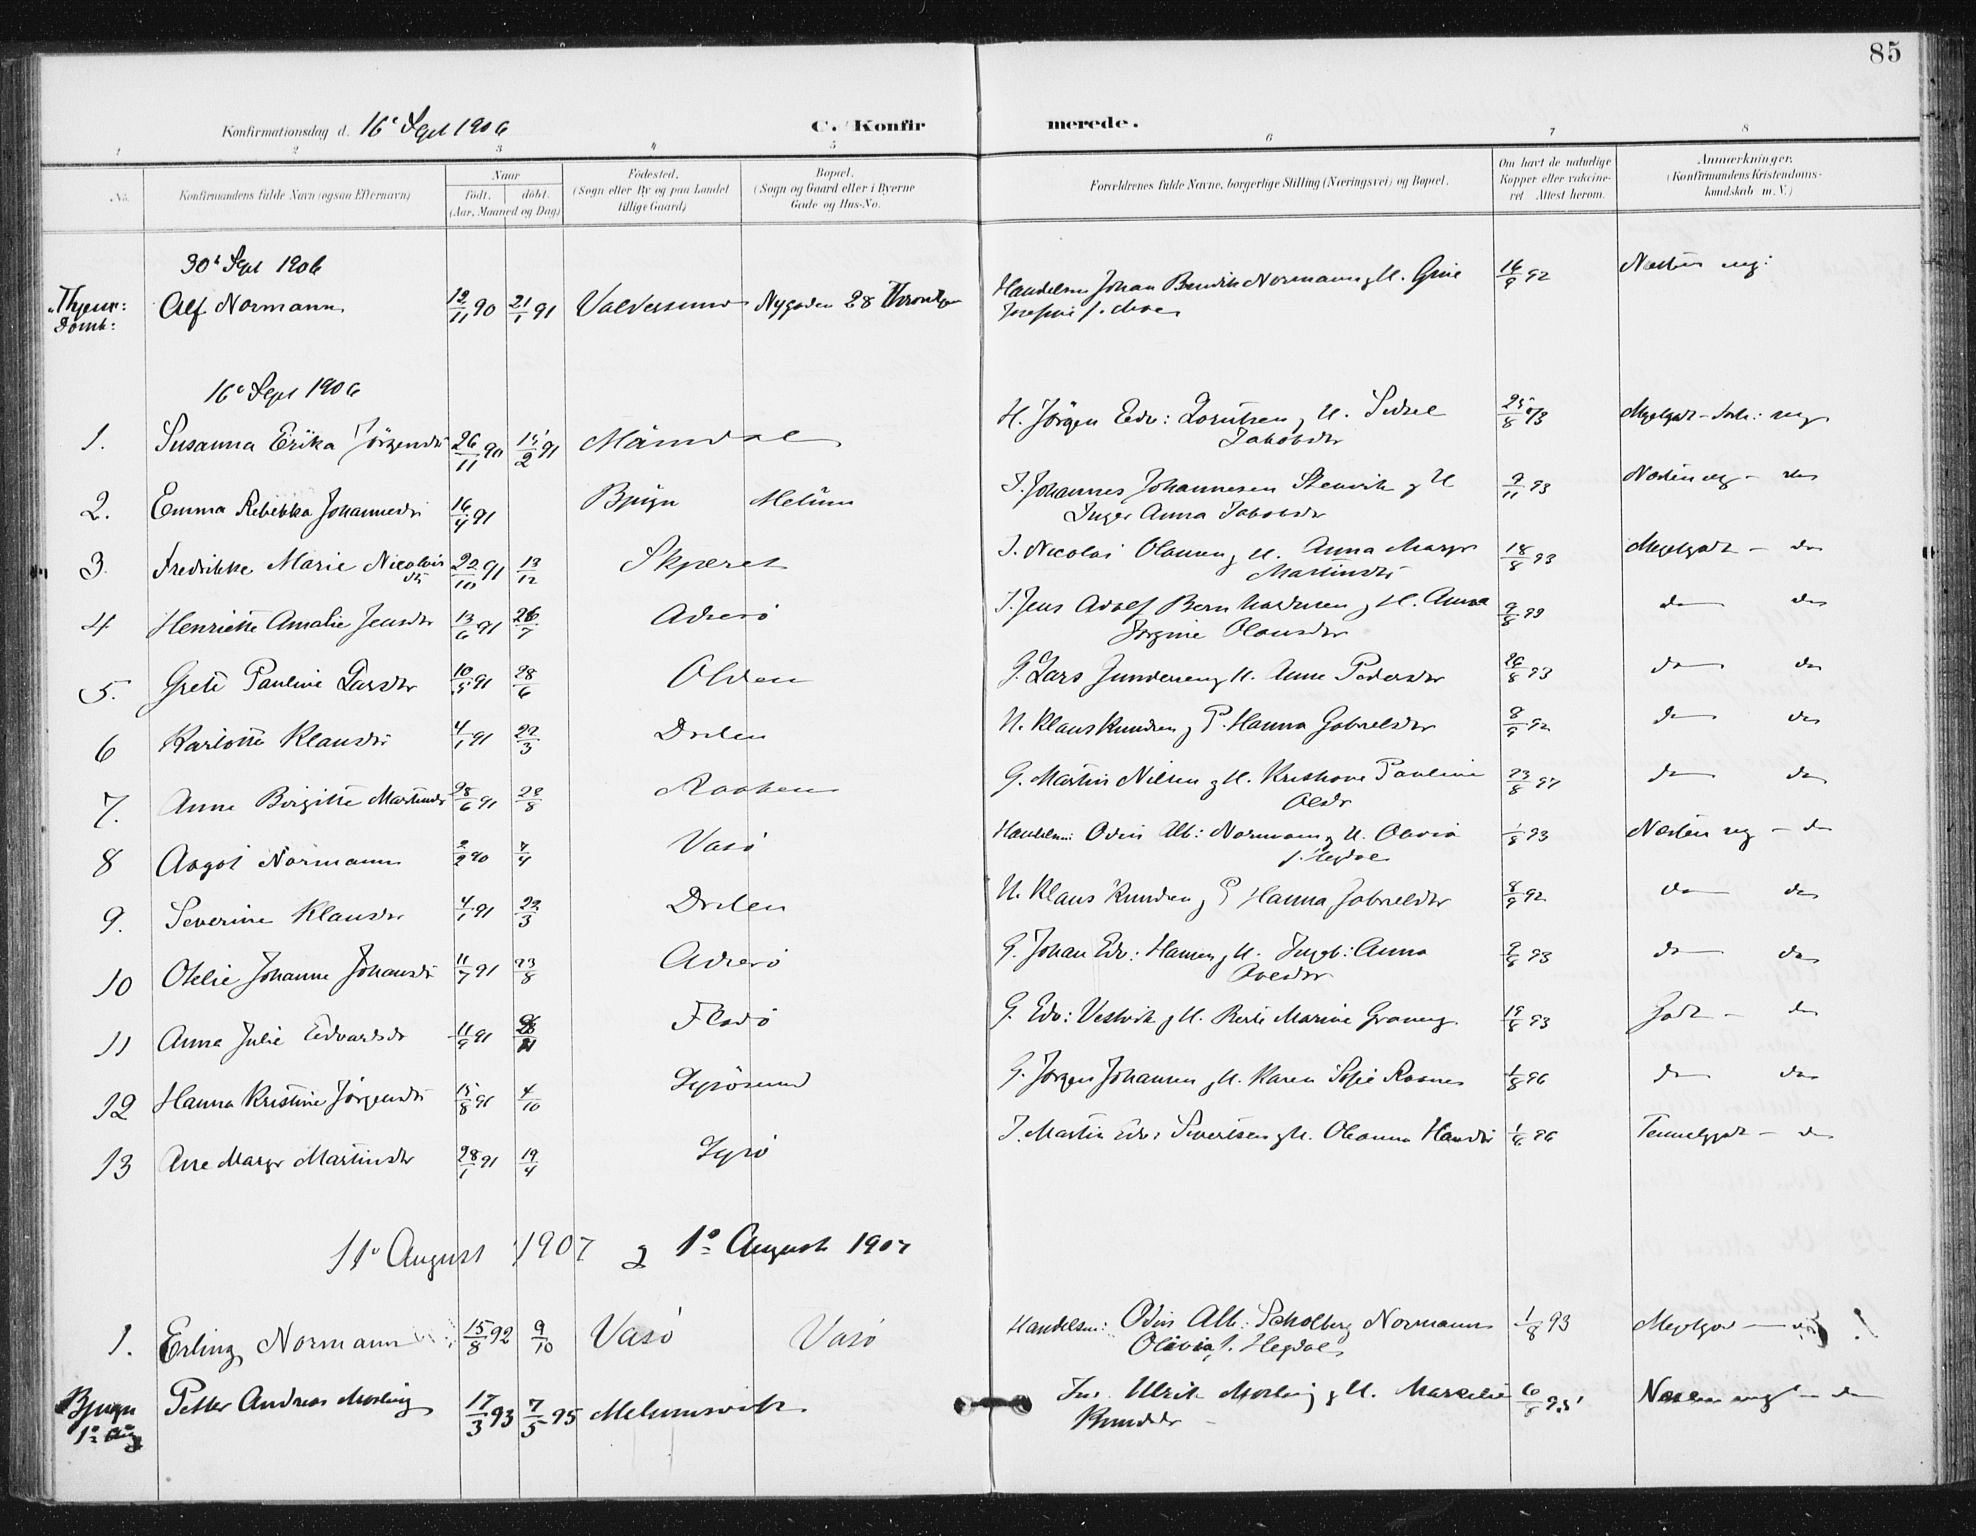 85
Konfirmationsdag d. 16de Sept 1906 C. Konfirmerede.
1 2 3 4 5 6 7 8
No. Konfirmandens fulde Navn (ogsaa Efternavn) Naar født. døbt. (Aar, Maaned og Dag) Fødested. (Sogn eller By og paa Landet tillige Gaard) Bopæl. (Sogn og Gaard eller i Byerne Gade og Hus-No. Forældrenes fulde Navne, borgerlige Stilling (Næringsvei) og Bopæl. Om havt de naturlige Kopper eller vaccineret. Attest herom. Anmærkninger. (Konfirmandens Kristendomskundskab m. V.)
30te Sept 1906
Alf Normann 12/11 90 21/1 91 Valdersund Nygaden 28 Handelsm Johan Bendik Normann g H. Gine 16/9 92
Josefine f. Moe
16de Sept 1906
1. Susanna Erika Jörgensdr 26/11 90 15/2 91 H. Jörgen Edv: Lorntsen g H. Sidsel 25/8 93
Jakobsdr
2. Emma Rebekka Johannesdr 16/4 91 Bjugn Melum I. Johannes Johannesen Stenvik g H 9/11 93
Inger Anna Jakobsdr
3. Fredrikke Marie Nicolaisdr 22/10 91 13/12 Skjæret I. Nicolai Olausen g H. Anna Margr 18/8 93 Megetgodt - do
Martinsdr
4. Henriette Amalie Jensdr 13/6 91 26/7 Asserö I. Jens Adolf Bernhardsen g H. Anna do do
Jörgine Olausdr
5. Grete Pauline Larsdr 10/5 91 28/6 Olden G. Lars Gundersen g H. Anne Pedersdr 26/8 93 do do
6 Karlotte Klausdr 4/1 91 22/3 N. Klaus Knudsen g P. Hanna Gabrielsdr 8/9 92 do do
7. Anne Birgitte Martinsdr 28/6 91 G. Martin Nilsen g H. Kristiane Pauline do do
Olsdr
8 Aagot Normann 2/2 90 7/4 Vasö Handelsm: Odin Alb: Normann g H. Olivia 1/8 93 Næsten mg - do
f. Hegdal
9. Severine Klausdr 4/1 91 22/3 N. Klaus Knudsen g P Hanna Gabrielsdr 8/9 92 do do
10 Otelie Johanne Johansdr 11/7 91 23/8 Asserö G. Johan Edv: Hansen g H. Ingeb: Anna do do
11 Anna Julie Edvardsdr 11/9 91 G. Edv: Vestvik g H. Berte Marine 19/8 93 Godt - do
12 Hanna Kristine Jörgensdr 15/8 91 4/10 Lysösund G. Jörgen Johansen g H. Karen Sofie 1/8 96 do do
13 Ane Margr Martinsdr 28/1 91 19/4 Lysö I. Martin Edv: Sivertsen g H. Oleanna Hansdr Temmelgodt - do
11te August 1907 g 1ste August 1907
1. Erling Normann 15/8 92 9/10 Vasö Vasö Handelsm: Odin Alb: Scholberg Normann 1/8 93 Megetgodt - do !
Olivia f. Hegdal
Bjugn 1ste Aug Petter Andreas Morling 17/3 93 7/5 95 Melumsvik Ulrik Morling g H. Marselie 6/8 95
Knudsdr